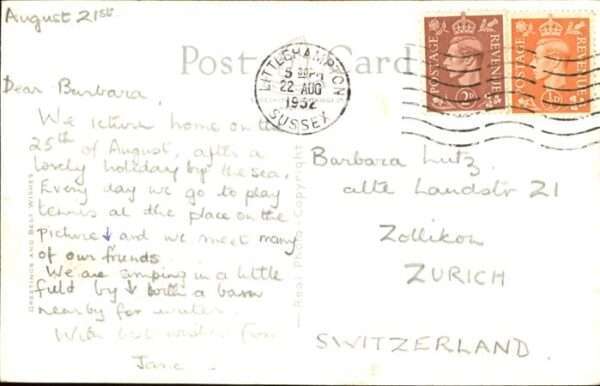 August 21st
Post Card
LITTLEHAMPTON
5 30PM
22 AUG
1952
SUSSEX
POSTAGE REVENUE
2D
POSTAGE REVENUE
½D
Dear Barbara,
We return home on the
25th of August, after a
lovely holiday by the sea.
Every day we go to play
tennis at the place on the
picture ↓ and we meet many
of our friends.
We are camping in a little
field by ↓ with a barn
nearby for water.
With best wishes from
Jane.
Barbara Lutz,
alte Landstr 21
Zollikon
ZURICH
SWITZERLAND.
GREETINGS AND BEST WISHES
Real Photo - Copyright